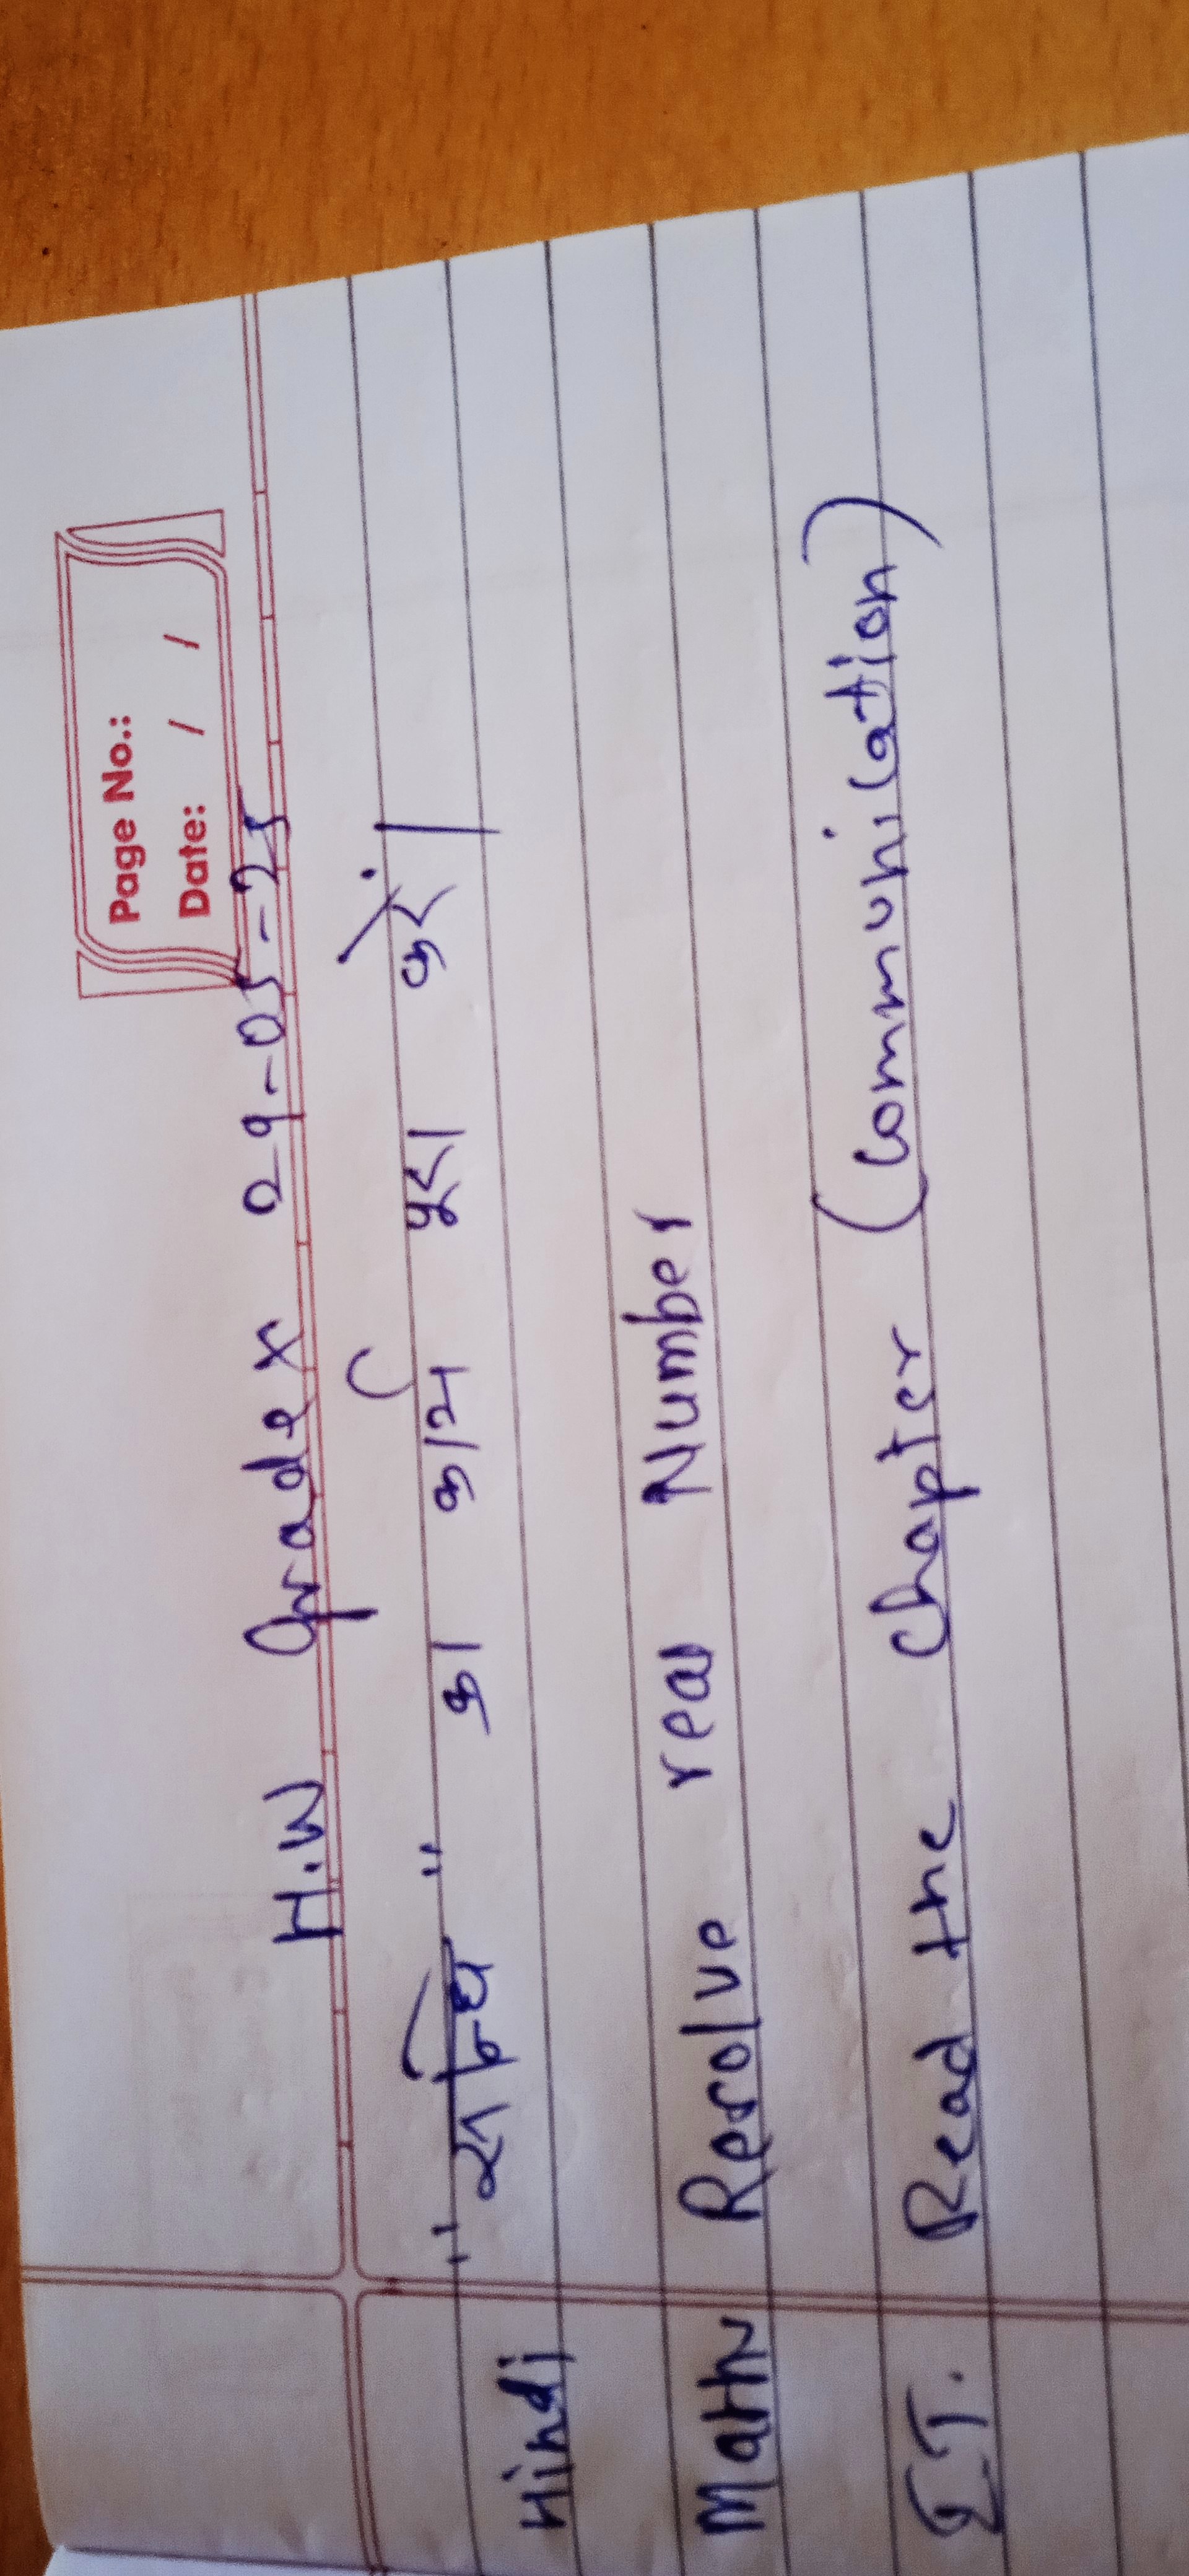 Page No.:
Date: / /
H.W Grade X 29-05-25
Hindi "सन्धि" का कार्य पूरा करें।
Maths Resolve real Number
I.T. Read the chapter (Communication)